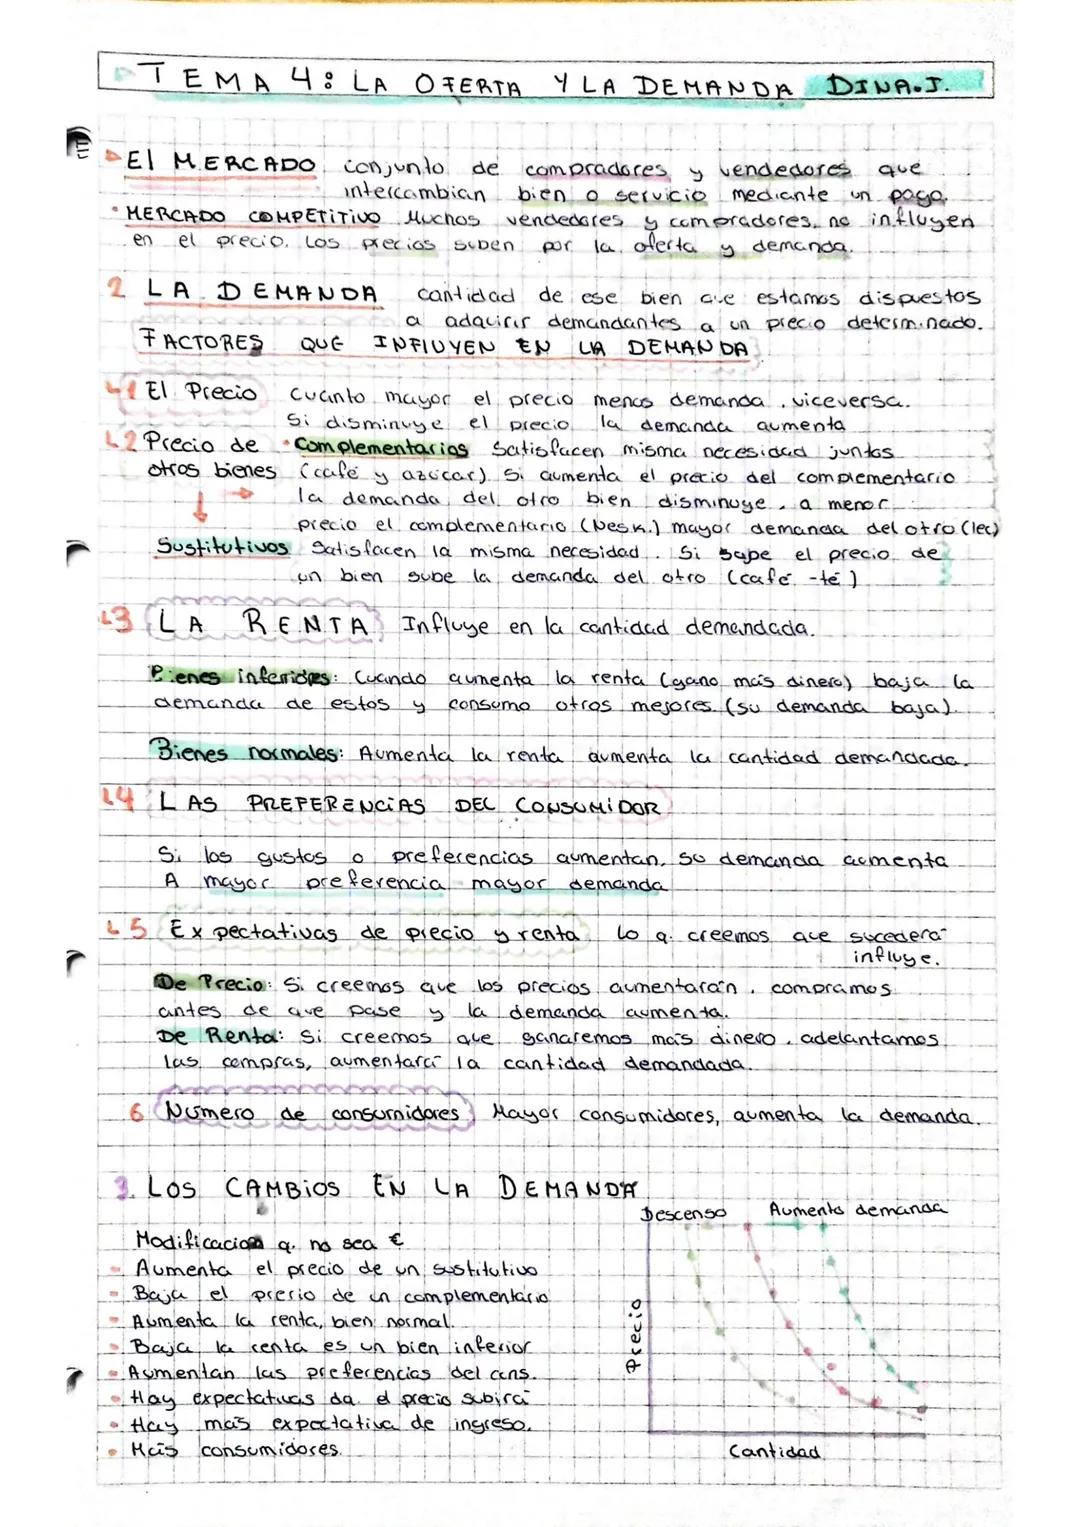 TEMA 4: LA OFERTA Y LA DEMANDA DINA.J.
El MERCADO conjunto de compradores y vendedores que
intercambian bien o servicio mediante un pago.
• MERCADO COMPETITIVO Muchos vendedores y compradores, no influyen
en el precio. Los precios suben por la oferta y demanda.
2 LA DEMANDA cantidad de ese bien que estamos dispuestos
a adquirir demandantes a un precio determinado.
FACTORES QUE INFLUYEN EN LA DEMANDA
1 El Precio Cuanto mayor el precio menos demanda, viceversa.
Si disminuye el precio la demanda aumenta
2 Precio de • Complementarios Satisfacen misma necesidad juntos
otros bienes (café y azúcar). Si aumenta el precio del complementario
la demanda del otro bien disminuye, a menor
precio el complementario (Nesk.) mayor demanda del otro (lec)
Sustitutivos Satisfacen la misma necesidad. Si sube el precio de
un bien sube la demanda del otro (café - té)
3 LA RENTA Influye en la cantidad demandada.
Bienes inferiores: Cuando aumenta la renta (gano más dinero) baja la
demanda de estos y consumo otros mejores (su demanda baja).
Bienes normales: Aumenta la renta aumenta la cantidad demandada.
4 LAS PREFERENCIAS DEL CONSUMIDOR
Si los gustos o preferencias aumentan, su demanda aumenta
A mayor preferencia mayor demanda
5 Expectativas de precio y renta Lo q. creemos que sucederá
influye.
De Precio: Si creemos que los precios aumentarán, compramos
antes de que pase y la demanda aumenta.
De Renta: Si creemos que ganaremos más dinero, adelantamos
las compras, aumentará la cantidad demandada.
6 Número de consumidores Mayor consumidores, aumenta la demanda.
3. LOS CAMBIOS EN LA DEMANDA
Descenso Aumento demanda
Modificación q. no sea €
- Aumenta el precio de un sustitutivo
- Baja el precio de un complementario
- Aumenta la renta, bien normal.
- Baja la renta es un bien inferior
- Aumentan las preferencias del cons.
- Hay expectativas da el precio subirá
- Hay más expectativa de ingreso.
- Más consumidores.
Precio
Cantidad